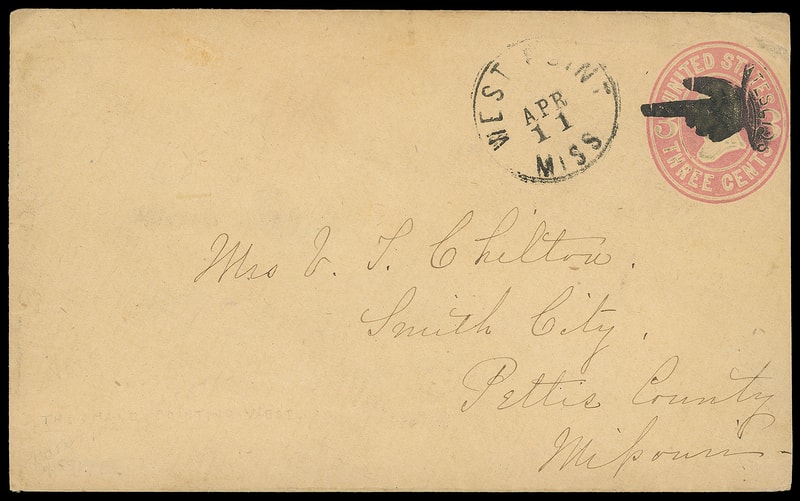 WEST POINT
APR
11
MISS
UNITED STATES
THREE CENTS
Mrs V. T. Chilton.
Smith City.
Pettis County
Missouri